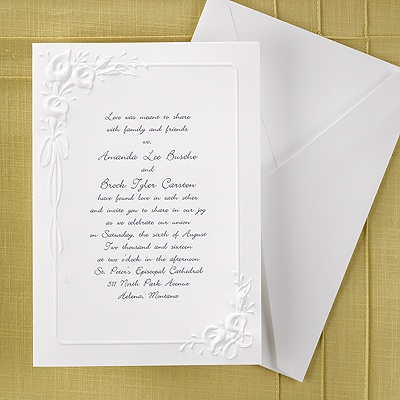 Love was meant to share
with family and friends
we,
Amanda Lee Buscho
and
Brock Tyler Carston
have found love in each other
and invite you to share in our joy
as we celebrate our union
on Saturday, the sixth of August
Two thousand and sixteen
at two o'clock in the afternoon
St. Peter's Episcopal Cathedral
511 North Park Avenue
Helena, Montana